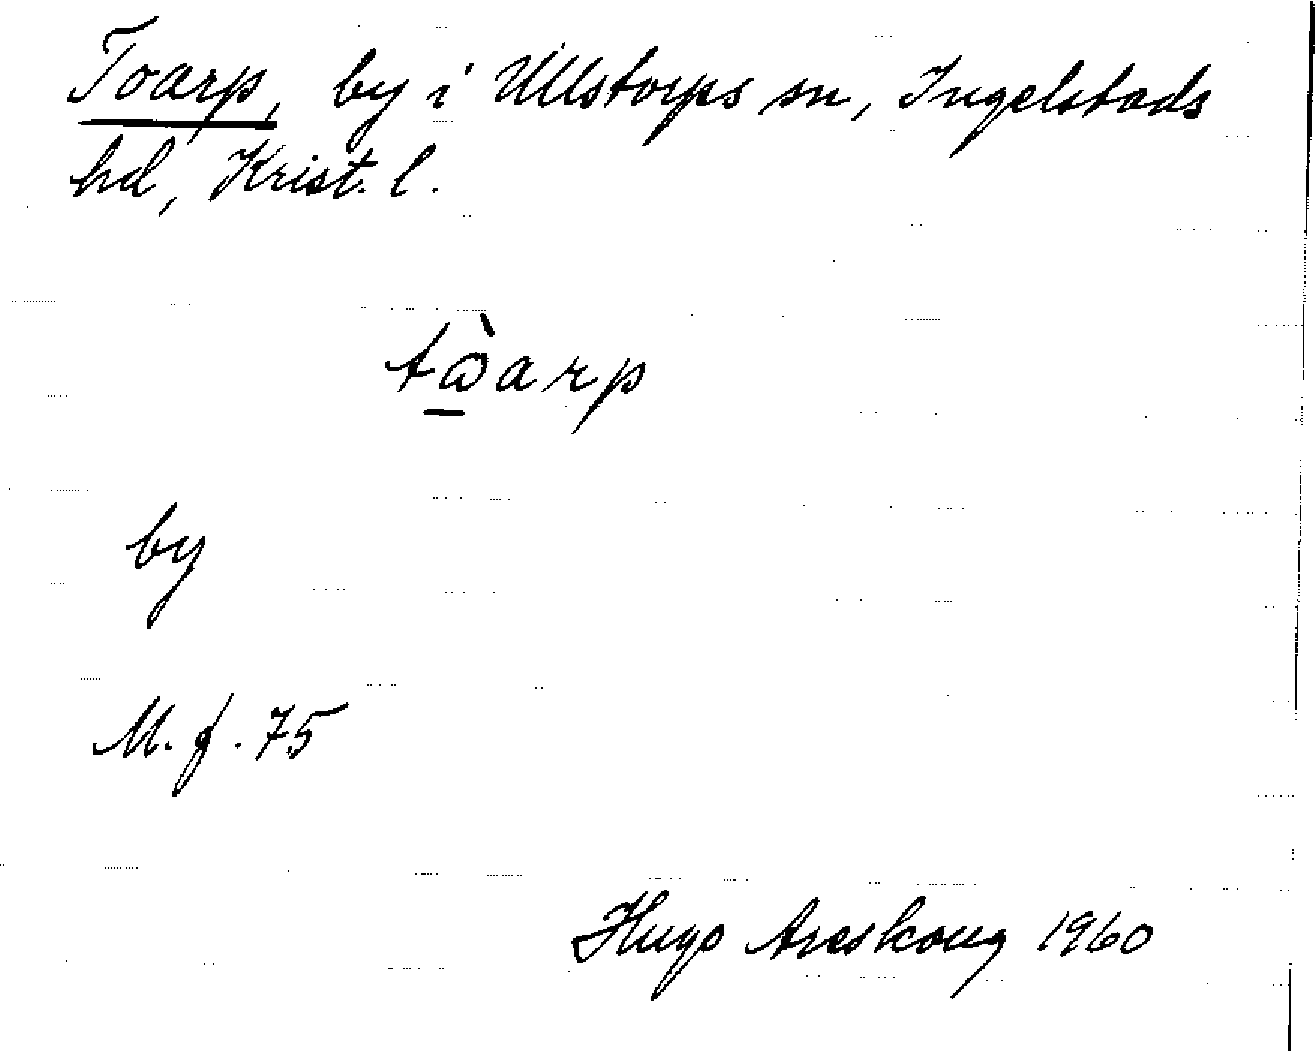 Toarp, by i Ullstorps sn, Ingelstads
hd, Krist. l.
tὼarp
by
M. f. 75
Hugo Areskoug 1960